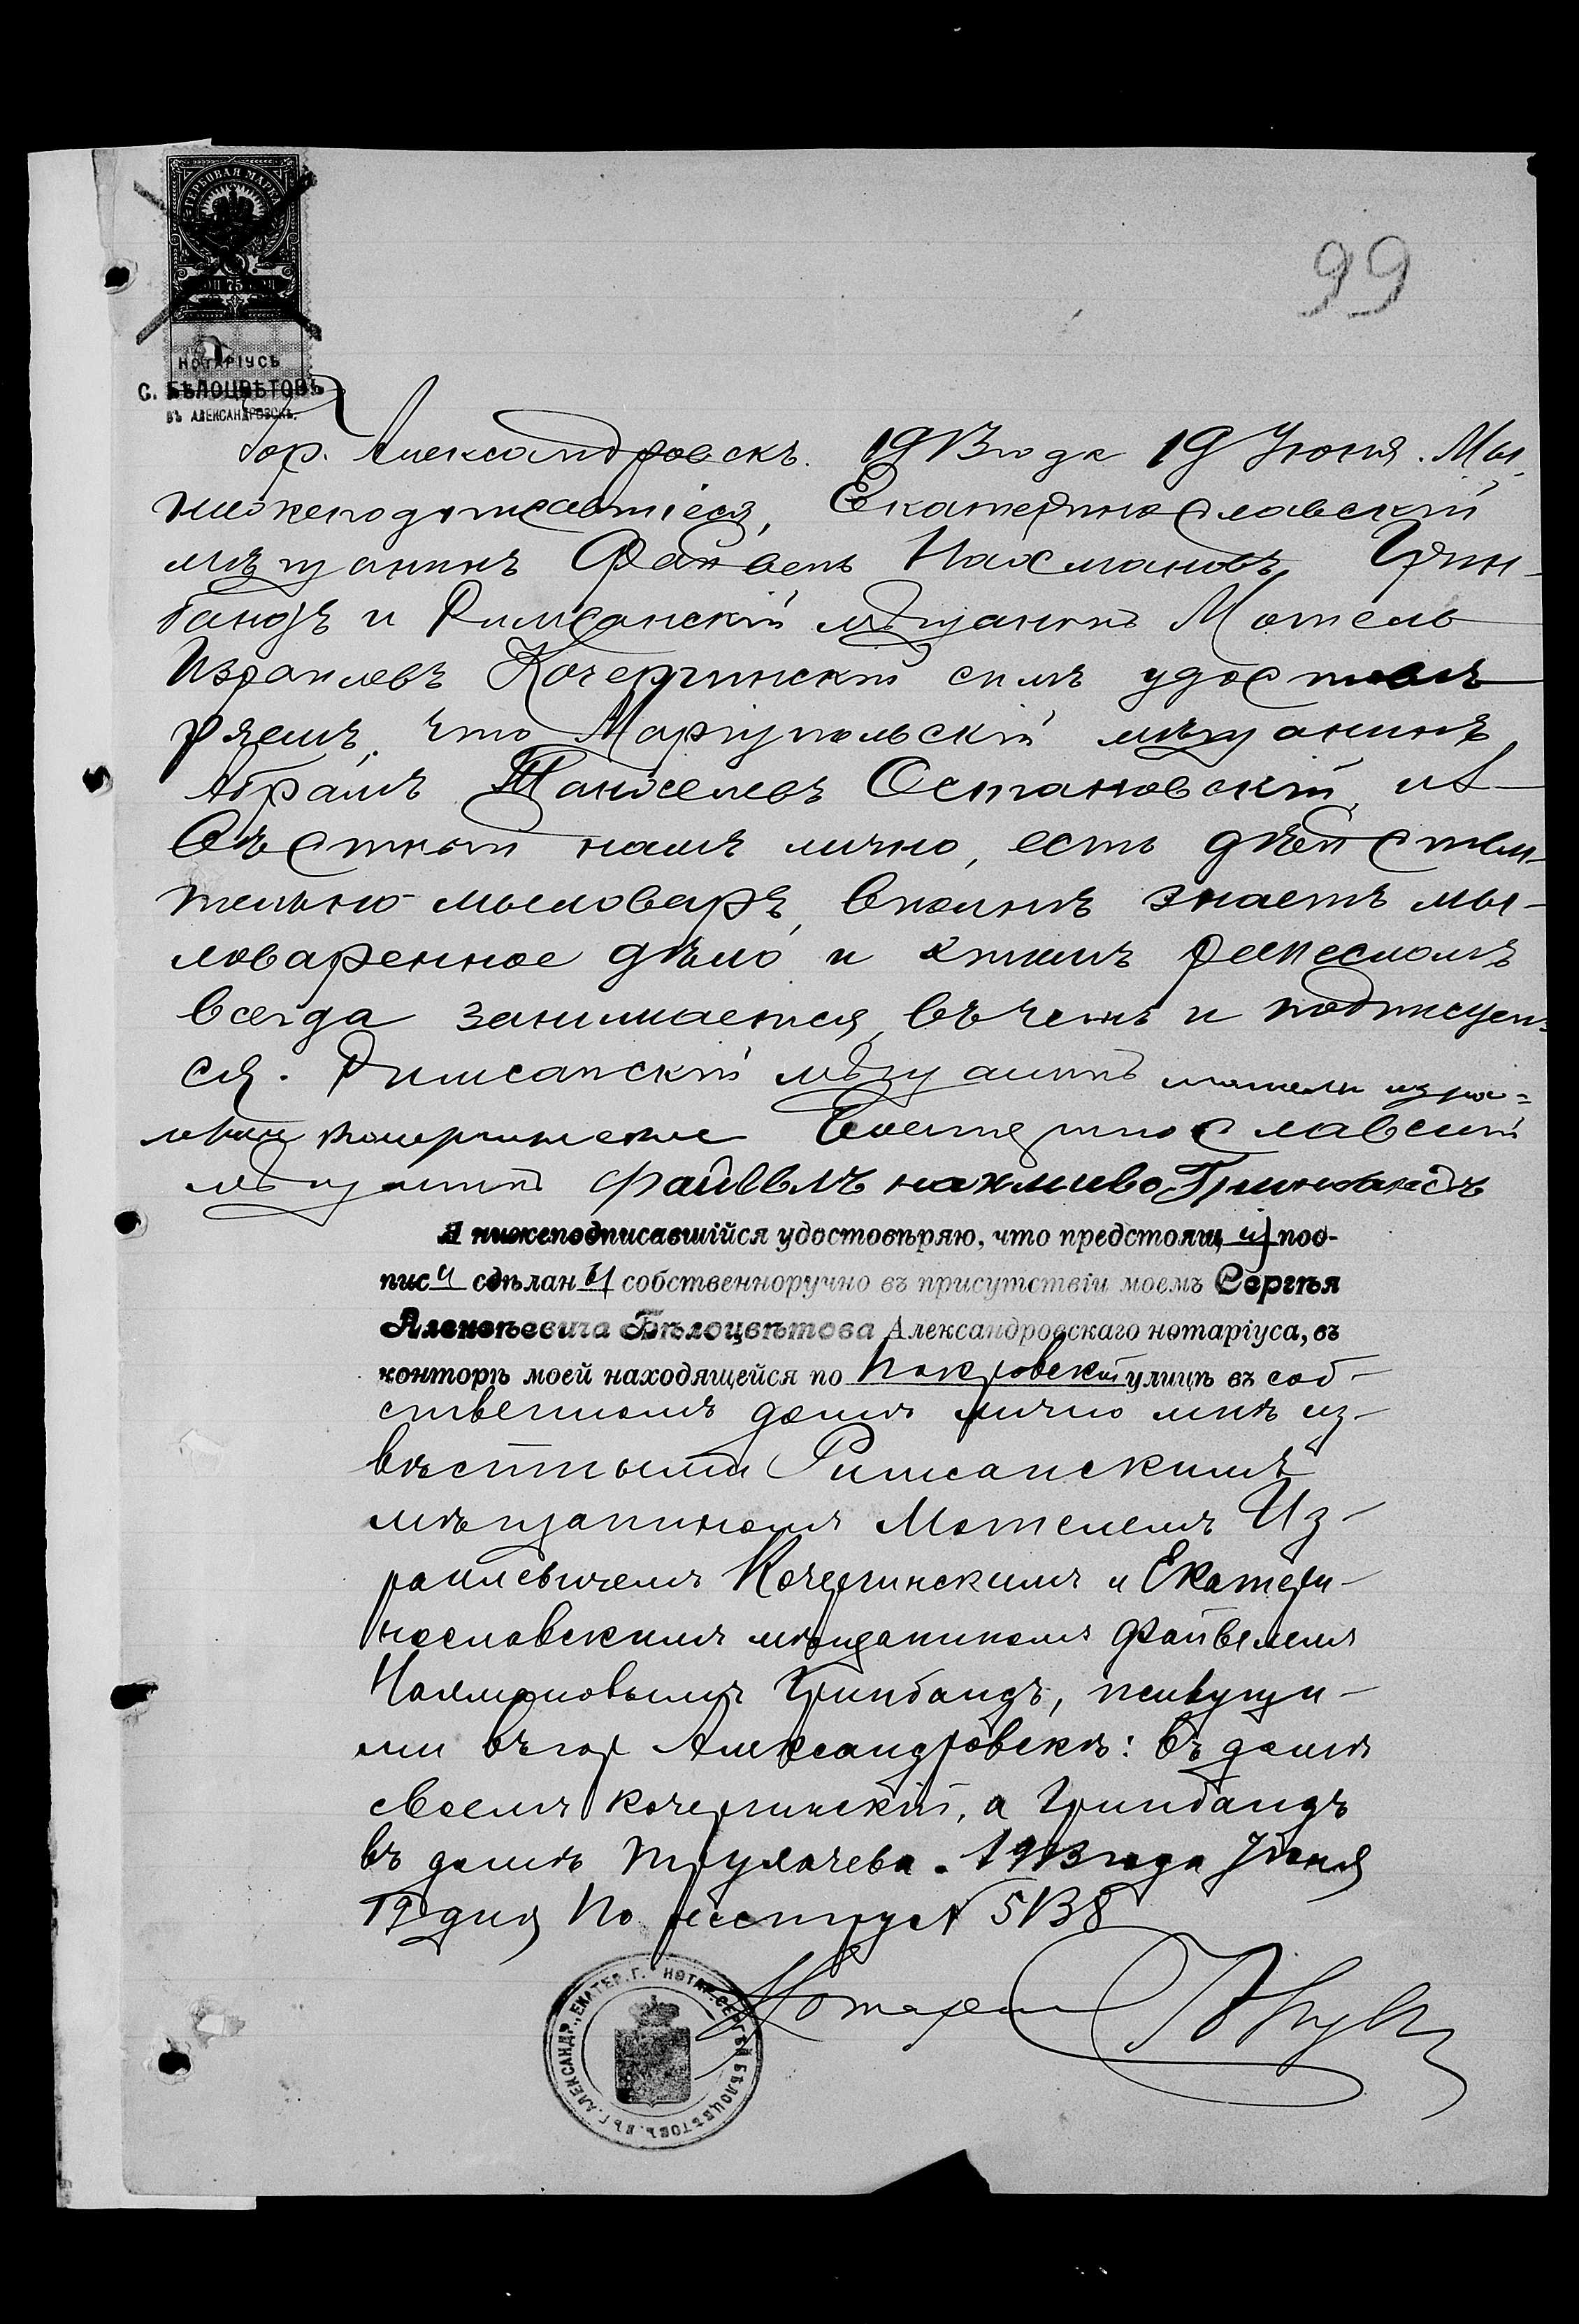 ГЕРБОВАЯ МАРКА
75
99
НОТАРІУСЪ
С. БѢЛОЦВѢТОВЪ
ВЪ АЛЕКСАНДРОВСКѢ.
Гор. Александровскъ. 1913 года 19 Іюня. Мы,
нижеподписавшіеся, Екатеринославскій
мѣщанинъ Файвель Нахмановъ Грин-
бандъ и Римсанскій мѣщанинъ Мотель
Израилевъ Кочергинскій симъ удостовѣ
ряемъ, что Маріупольскій мѣщанинъ
Абрамъ Танхелевъ Остановскій, из-
вѣстный намъ лично, есть дѣйстви-
тельно мыловаръ, вполнѣ знаетъ мы-
ловаренное дѣло и этимъ ремесломъ
всегда занимается, въ чемъ и подписуем-
ся. Римсанскій мѣщанинъ мотель изра-
левич кочергинский Екатеринославский
мѣщанинъ файввлъ нахмиво Гринбандъ
Я нижеподписавшійся удостовѣряю, что предстоящія под-
писи сдѣланы собственноручно въ присутствіи моемъ Сергѣя
Алексѣевича Бѣлоцвѣтова Александровскаго нотаріуса, въ
конторѣ моей находящейся по Покровской улицѣ въ соб-
ственномъ домѣ лично мнѣ из-
вѣстными Римсанскимъ
мѣщаниномъ Мотелемъ Из-
раилевичемъ Кочергинскимъ и Екатери-
нославскимъ мѣщаниномъ Файвелемъ
Нахмановымъ Гринбандъ, живущи-
ми въ гор Александровскѣ: въ домѣ
своемъ Кочергинскій, а Гринбандъ
въ домѣ Трухачева. 1913 года Іюня
19 дня По реестру № 5138
Нотаріусъ
АЛЕКСАНДР., ЕКАТЕР. Г. НОТАР. СЕРГѢЙ БѢЛОЦВѢТОВЪ. ВЪ Г.